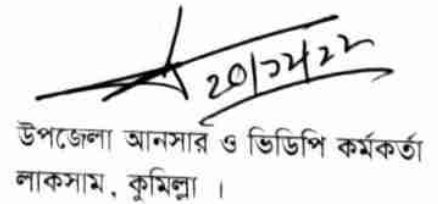 ২০/১২/২২
উপজেলা আনসার ও ভিডিপি কর্মকর্তা
লাকসাম, কুমিল্লা ।